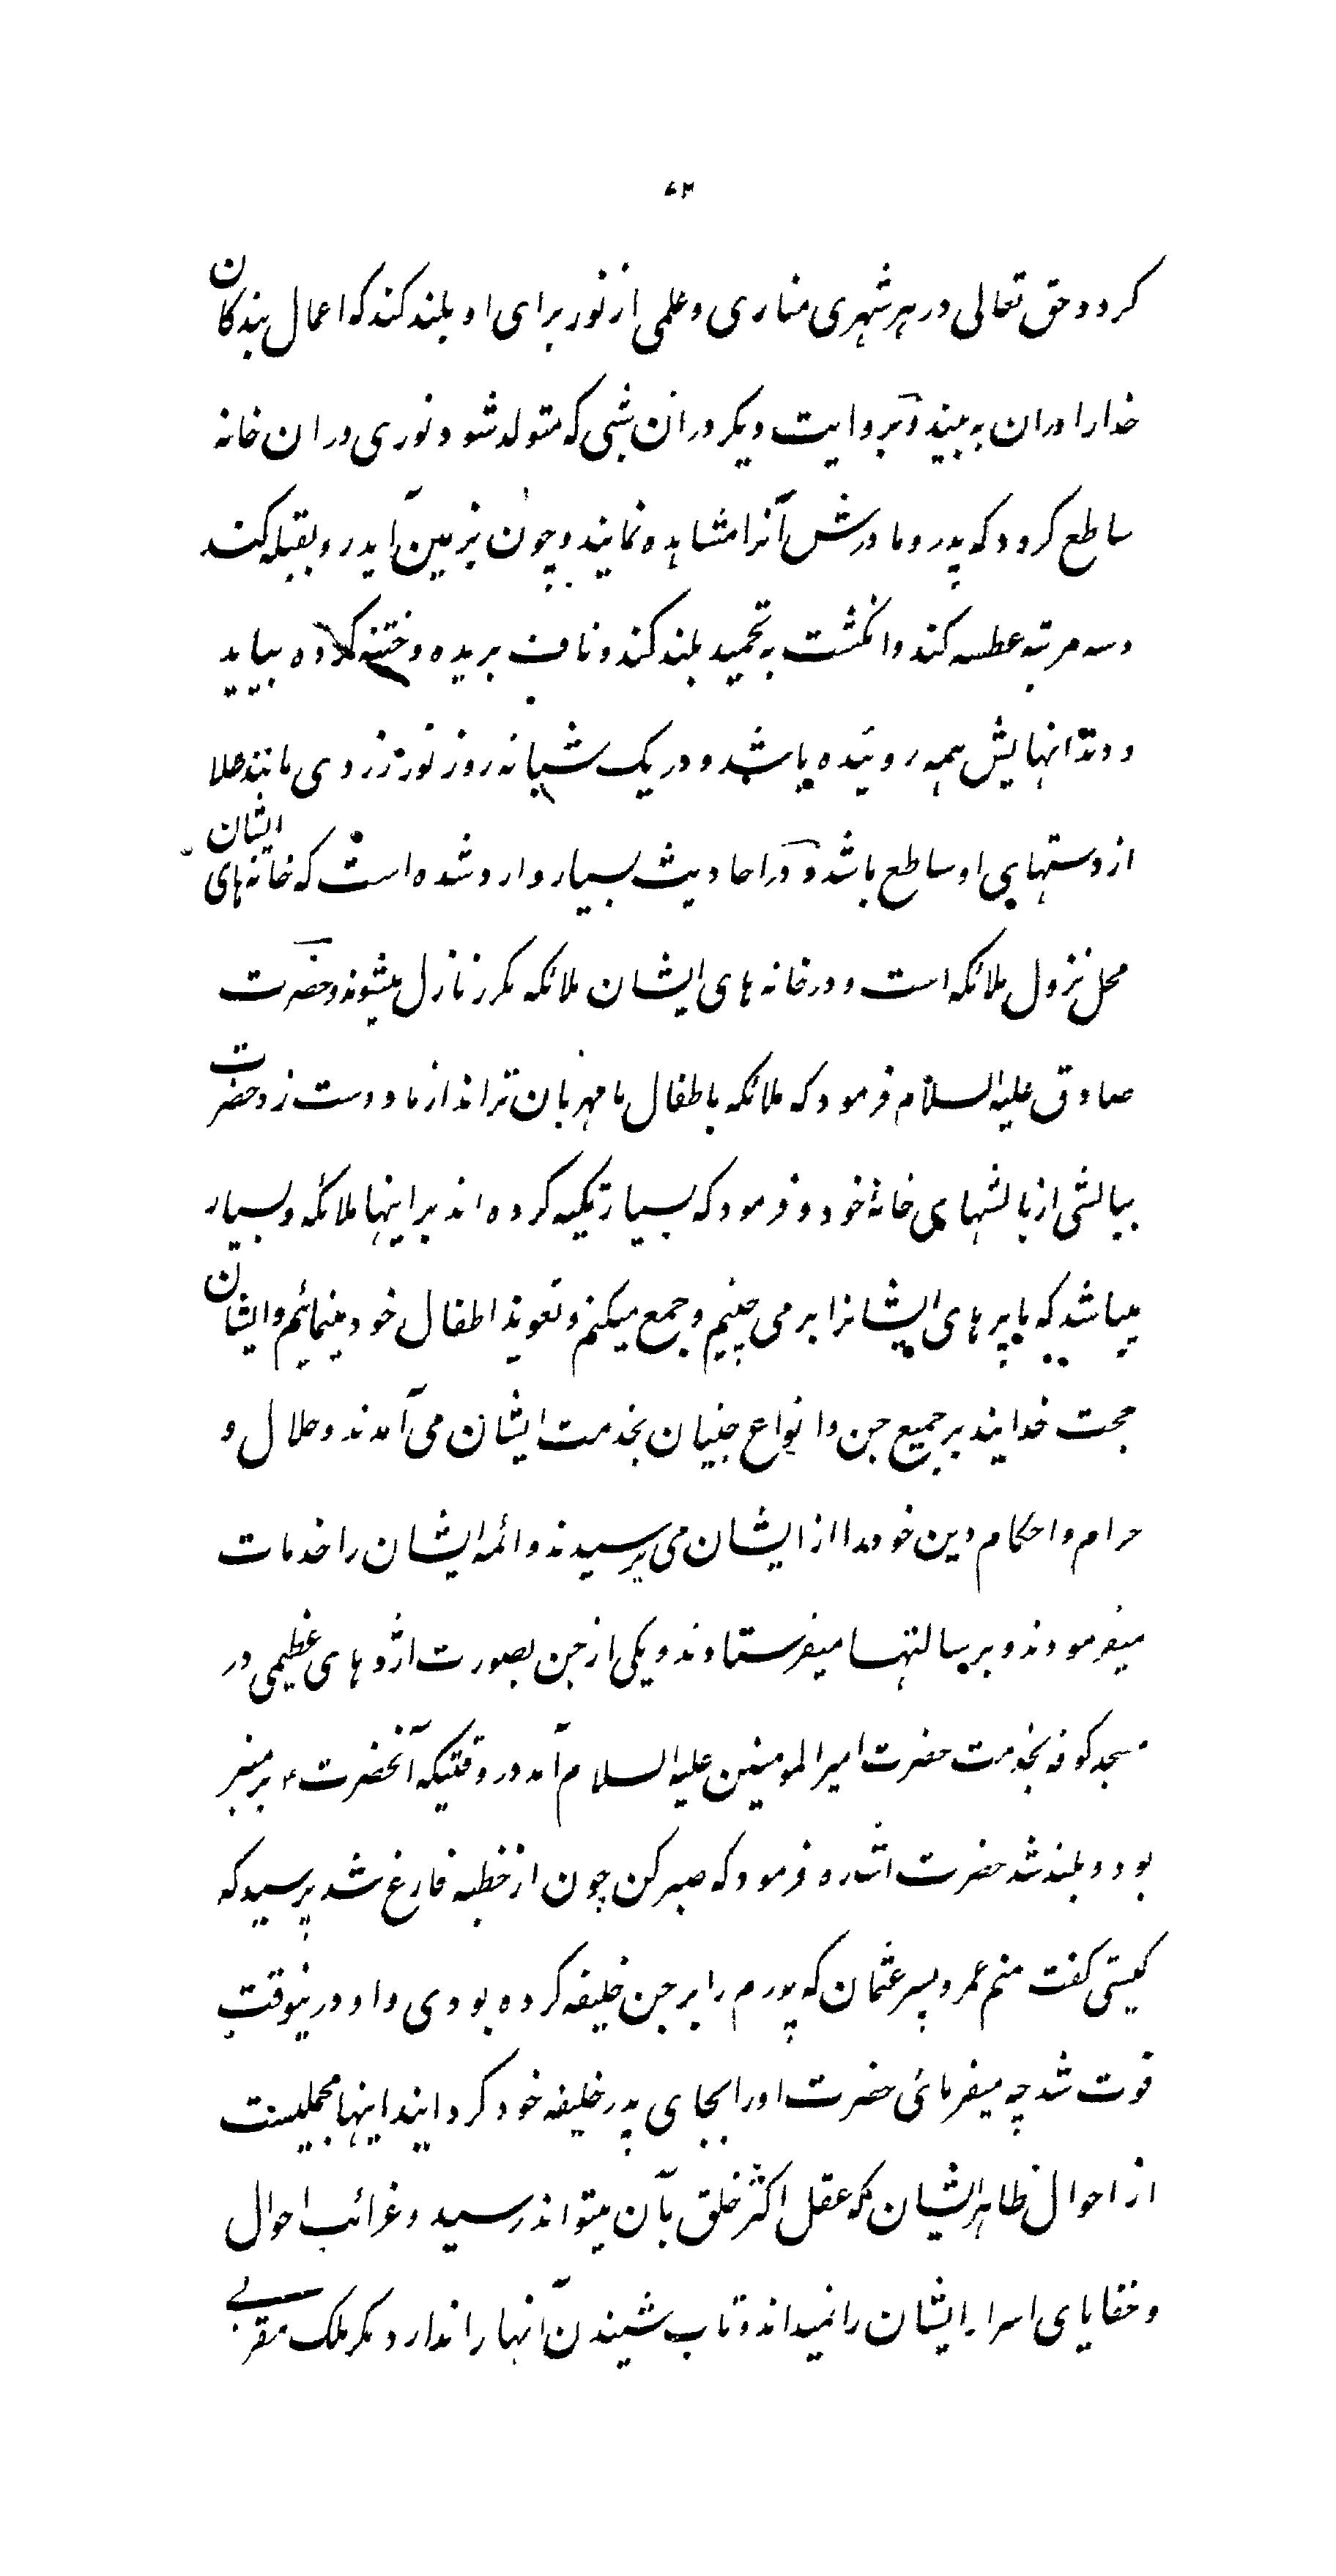 ۷۳
کردد حق تعالی در هر شهری مناری و علمی از نور برای او بلند کند که اعمال بندکان
خدا را در ان به بیند و بروایت دیکر در ان شبی که متولد شود نوری در ان خانه
ساطع کردد که پدر و مادرش آنرا مشاهده نمایند و چون بزمین آید رو بقبله کند
و سه مرتبه عطسه کند و انکشت به تحمید بلند کند و ناف بریده و ختنه کرده بیاید
و دندانهایش همه روئیده باشد و در یک شبانه روز نور زردی مانند طلا
از دستهای او ساطع باشد و در احادیث بسیار وارد شده است که خانه های ایشان
محل نزول ملائکه است و در خانه های ایشان ملائکه مکرر نازل میشوند و حضرت
صادق علیه السلام فرمود که ملائکه باطفال ما مهربان تراند از ما و دست زد حضرت
ببالشی از بالشهای خانۀ خود و فرمود که بسیار تکیه کرده اند بر اینها ملائکه و بسیار
میباشد که ما پرهای ایشانرا بر می چینیم و جمع میکنم و تعویذ اطفال خود مینمائیم و ایشان
حجت خدایند بر جمیع جن و انواع جنیان بخدمت ایشان می آمدند و حلال و
حرام و احکام دین خود را از ایشان می پرسیدند و ائمه ایشان را خدمات
میفرمودند و برسالتها میفرستادند و یکی از جن بصورت اژدهای عظیمی در
مسجد کوفه بخدمت حضرت امیر المومنین علیه السلام آمد در وقتیکه آنحضرت ء بر منبر
بود و بلند شد حضرت اشاره فرمود که صبر کن چون از خطبه فارغ شد پرسید که
کیستی کفت منم عمرو پسر عثمان که پدرم را بر جن خلیفه کرده بودی و او درینوقت
فوت شد چه میفرمائی حضرت او را بجای پدر خلیفه خود کردانید اینها مجملیست
از احوال ظاهر ایشان که عقل اکثر خلق بآن میتواند رسید و غرائب احوال
و خفایای اسرار ایشان را نمیداند و تاب شنیدن آنها را ندارد مکر ملک مقربی